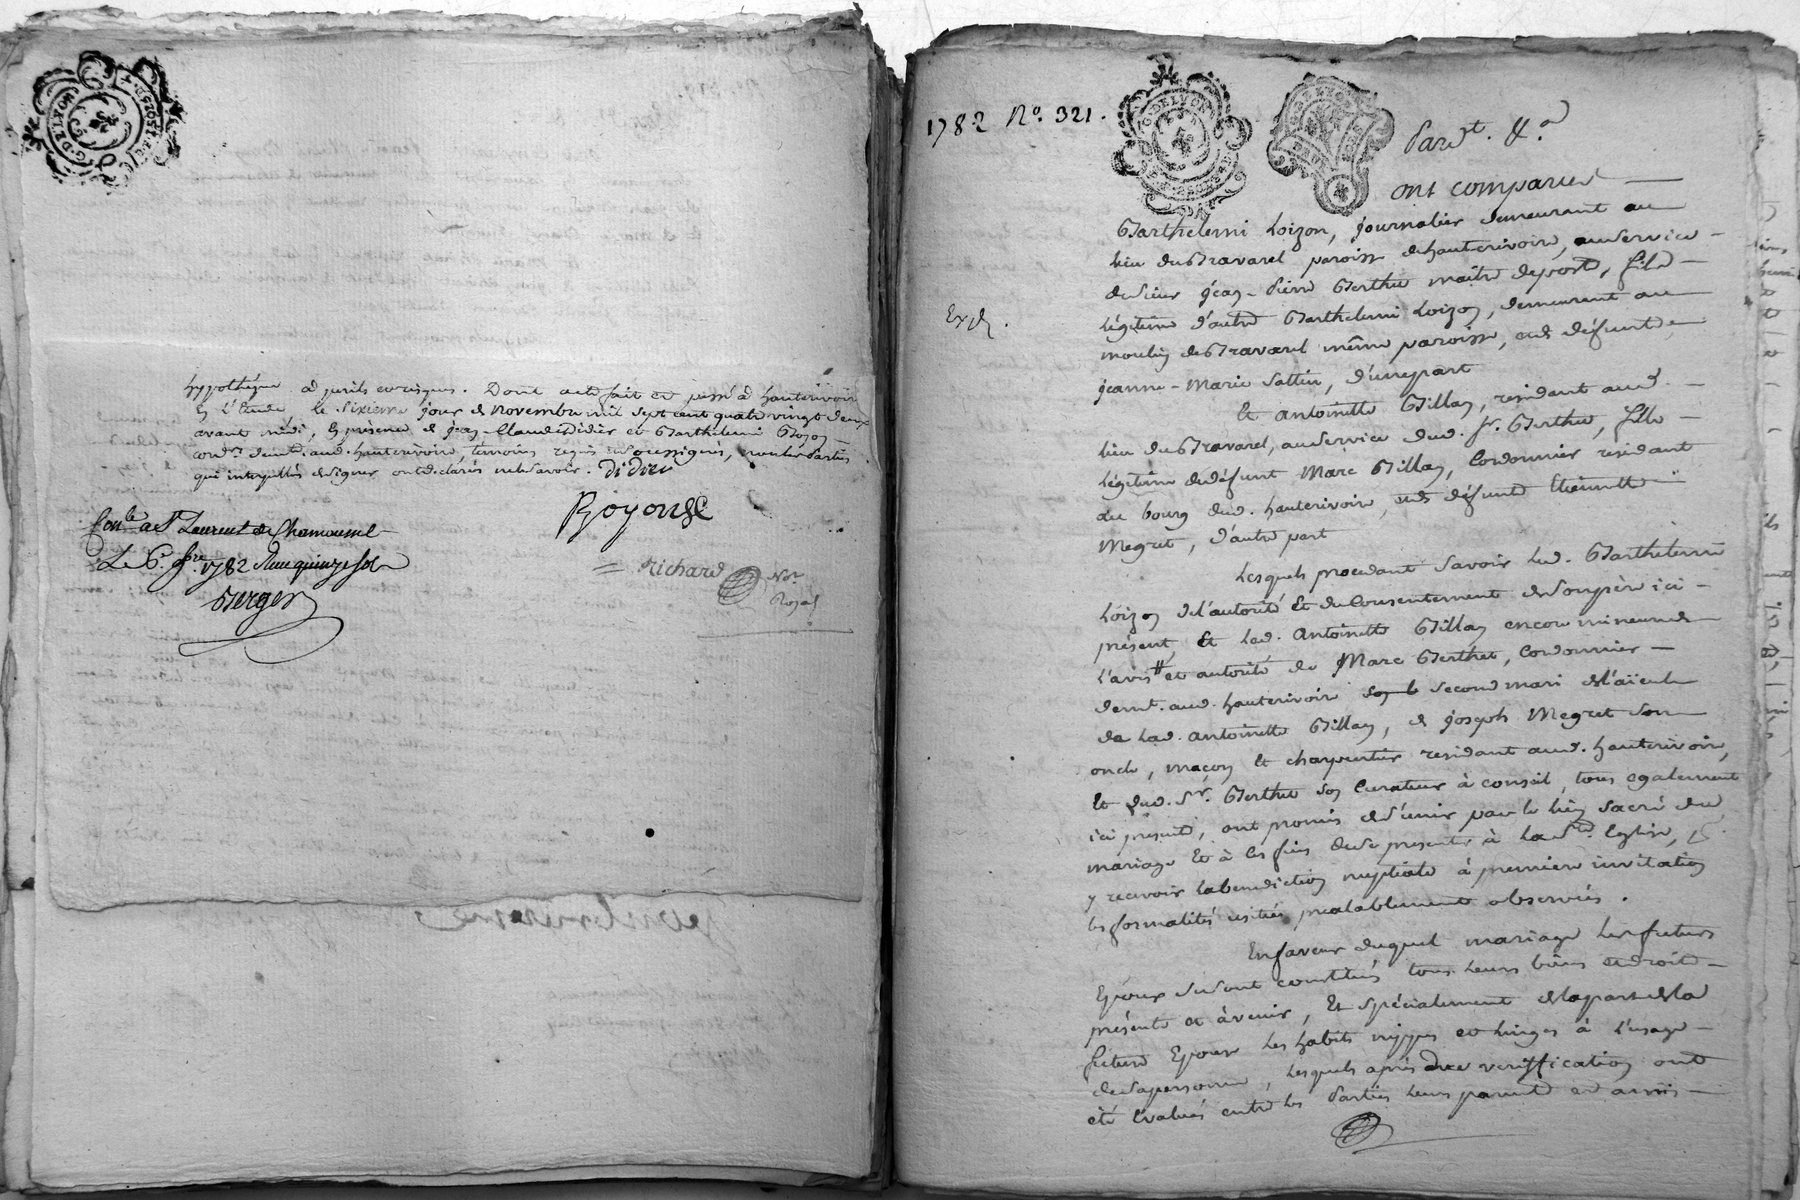 G. DE LYON
hypothéque a périls et risques. Dont acte fait et passé à hauterivoir
En L'Etude, Le Sixieme jour de Novembre mil sept cent quatre vingt deux
avant midi, En présence de jean-Claude Didier et Barthelemi Boyon
cord.rs dem.t aud. hauterivoire, temoins requis soussignés, non les Parties
qui interpellés de signer ont déclarés ne le savoir. Didier
Boyon
Con.lé a S.t Laurent de Chamousset
Le 6.e 9.bre 1782 Reçu quinze sols
Berger
Richard Not. Royal
1782 N.o 321.
G. DE LYON
Pard.t &.a
ont comparus
Barthelemi Loizon, journalier demeurant au
lieu du Bravarel paroisse de hauterivoire, au service
de sieur jean-Pierre Berthet maitre de poste, fils
Légitime d'autre Barthelemi Loizon, demeurant au
Exp.
moulin de Bravarel même paroisse, et de défunte
jeanne-Marie Sattin, d'une part
Et antoinette Billay, résidant aud.
lieu du Bravarel, au service dud. s.r Berthet, fille
légitime de défunt Marc Billay, Cordonnier résidant
au bourg dud. hauterivoire, et de défunte Etiennette
Megret, d'autre part
Lesquels procedant Savoir Led. Barthelemi
Loizon de l'autorité Et du Consentement de son père ici
présent, Et Lad. Antoinette Billay encore mineure de
L'avis et autorité de Marc Berthet, Cordonnier
dem.t aud. hauterivoire second mari de l'aïeule
de Lad. antoinette Billay, de joseph Megret son
oncle, maçon Et charpentier résidant aud. hauterivoire,
Et dud. S.r Berthet son Curateur à conseil, tous egalement
ici présents, ont promis de s'unir par le lien sacré du
mariage Et à ces fins de se presenter à La S.te Eglise, p.r
y recevoir la bénédiction nuptiale à premiere invitation
les formalités usitées préalablement observées.
En faveur duquel mariage Les futurs
Epoux se sont constitués tous Leurs biens et droits
présents et àvenir, Et spécialement de la part de la
future Epouse Les habits nippes et linges à L'usage
de sa personne, Lesquels après due vériffication ont
été Evalués entre Les Parties Leurs parents et amis